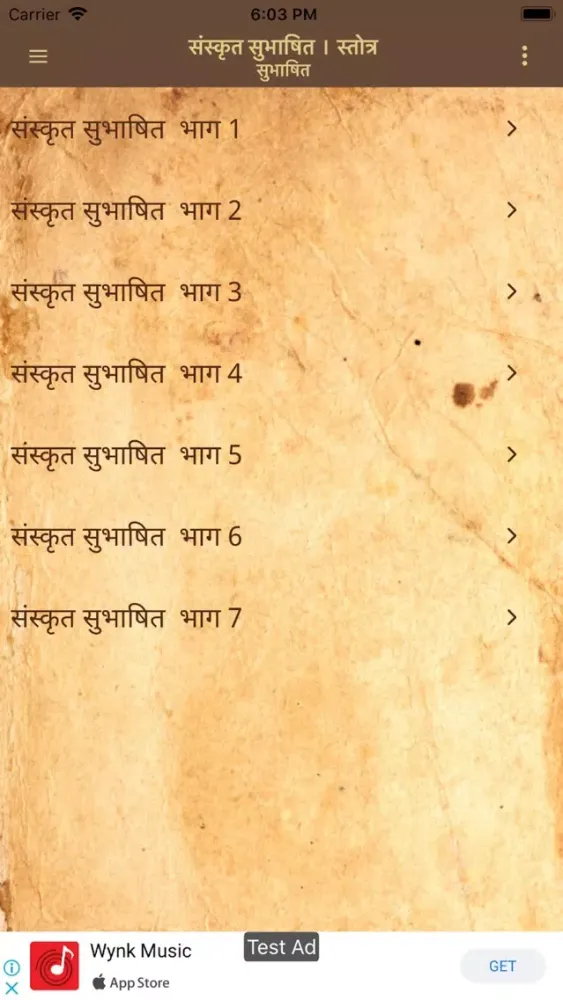 Carrier 6:03 PM
संस्कृत सुभाषित । स्तोत्र
सुभाषित
संस्कृत सुभाषित भाग 1
संस्कृत सुभाषित भाग 2
संस्कृत सुभाषित भाग 3
संस्कृत सुभाषित भाग 4
संस्कृत सुभाषित भाग 5
संस्कृत सुभाषित भाग 6
संस्कृत सुभाषित भाग 7
Test Ad
Wynk Music
App Store
GET